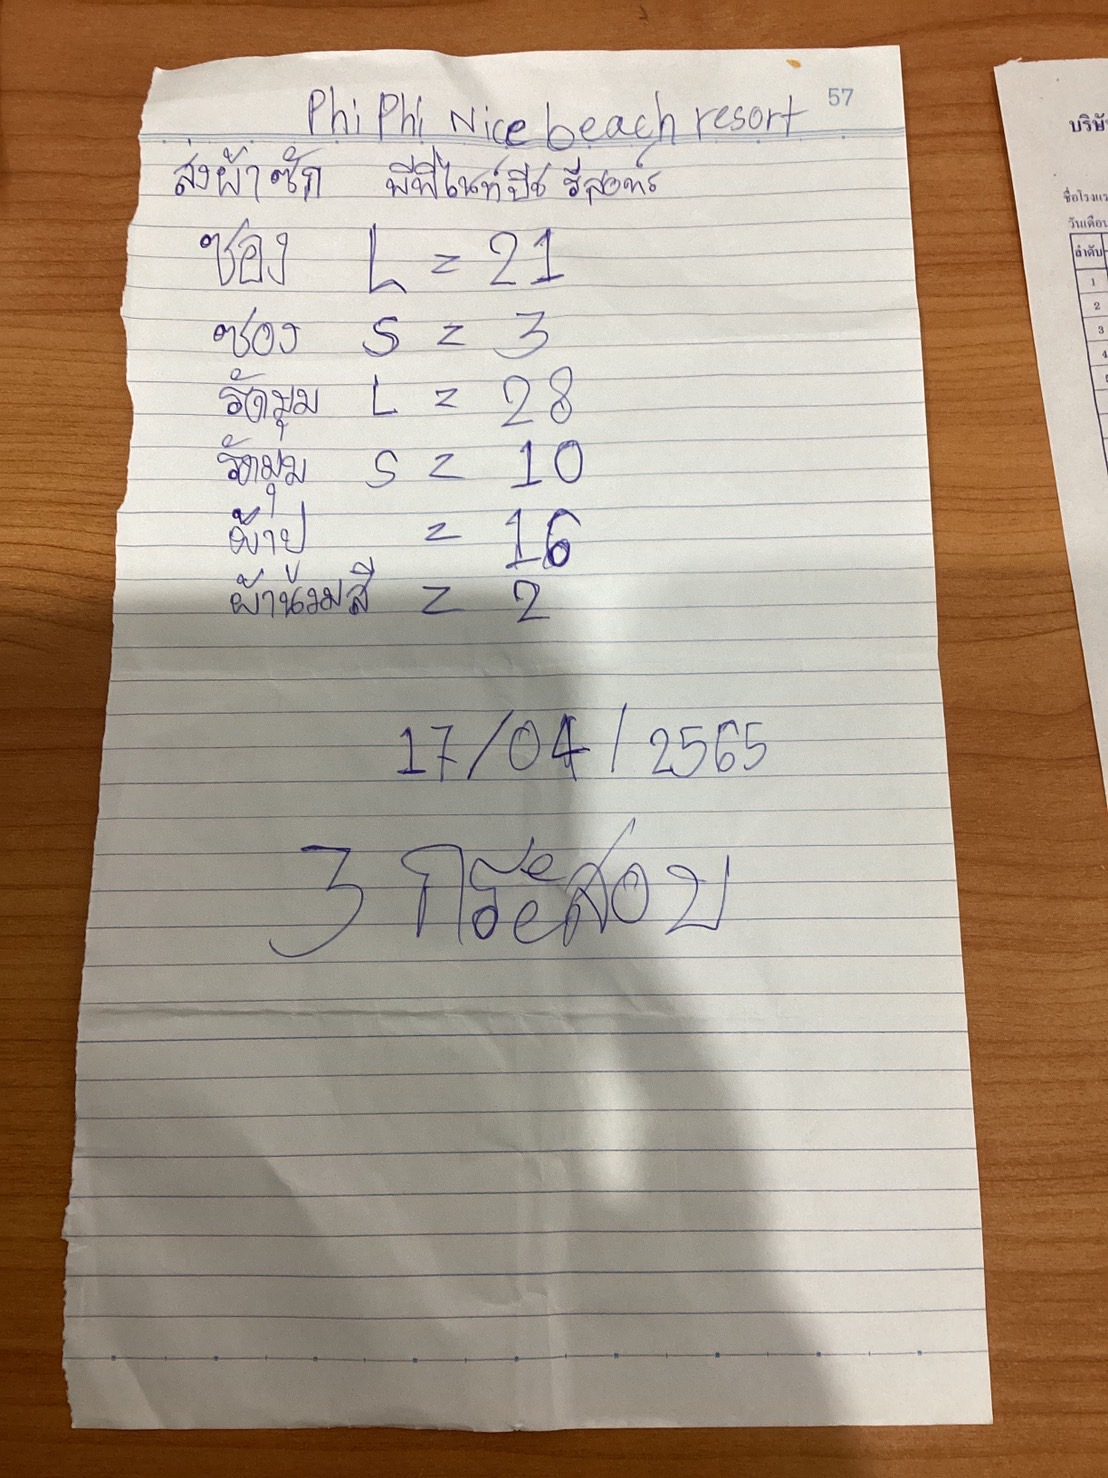 57
Phi Phi Nice beach resort
ส่งผ้าซัก พีพีไนท์บีช รีสอทร์
ซอง L = 21
ซอง S = 3
รัดมุม L = 28
รัดมุม S = 10
ผ้าปู = 16
ผ้านวมสี = 2
17/04/2565
3 กระสอบ
บริษั
ชื่อโรงแร
วันเดือน
ลำดับ
1
2
3
4